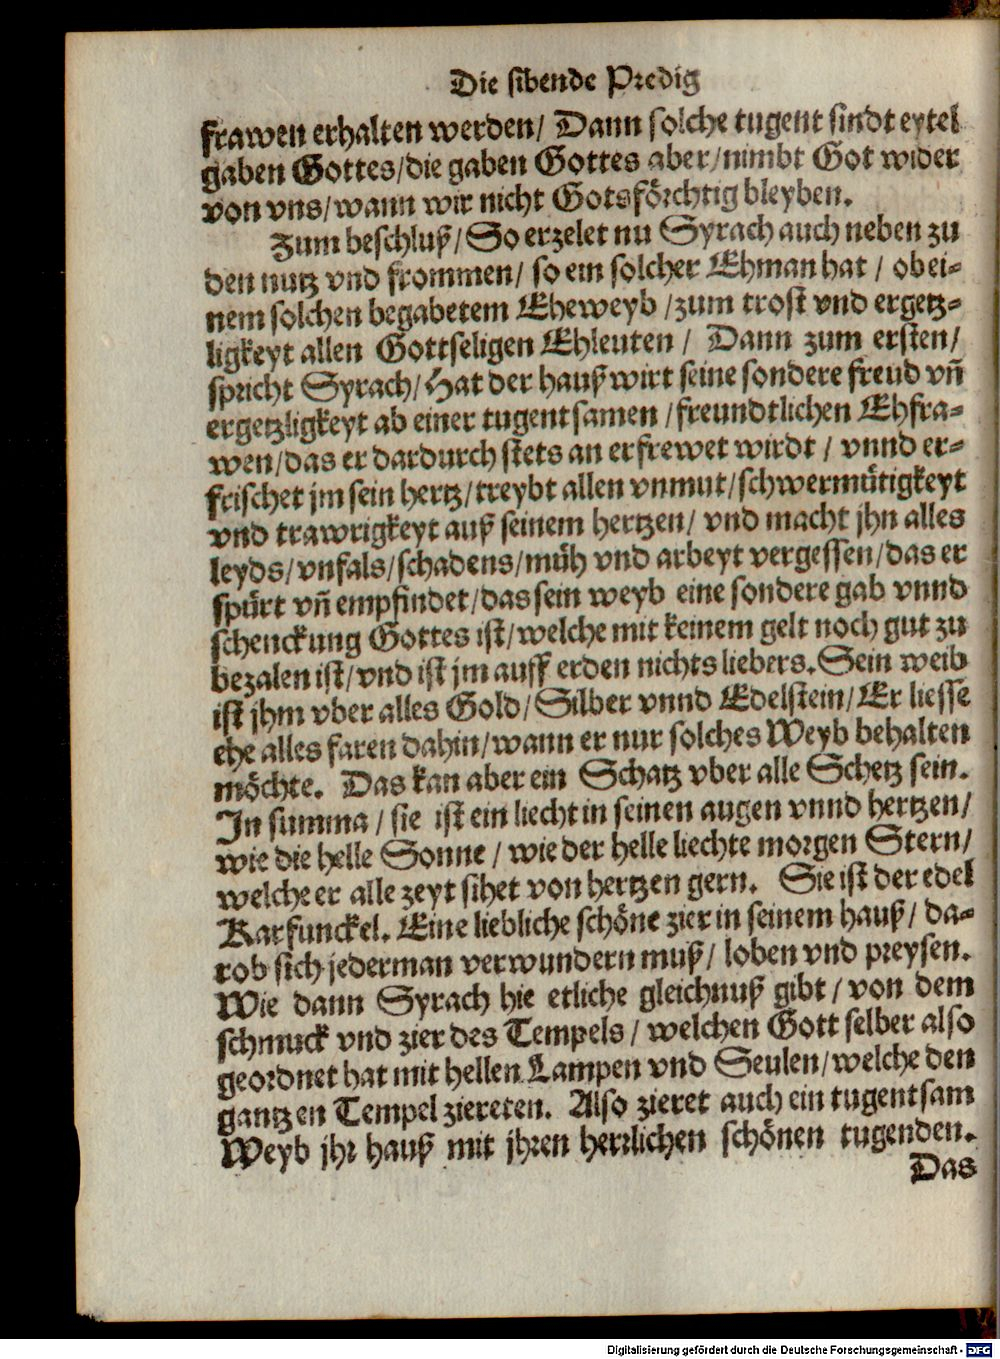 Die sibende Predig
frawen erhalten werden/ Dann solche tugent sindt eytel
gaben Gottes/die gaben Gottes aber/nimbt Got wider
von vns/wann wir nicht Gotsförchtig bleyben.
Zum beschluß/So erzelet nu Syrach auch neben zu
den nutz vnd frommen/ so ein solcher Ehman hat / ob ei-
nem solchen begabetem Eheweyb /zum trost vnd ergetz-
ligkeyt allen Gottseligen Ehleuten / Dann zum ersten/
spricht Syrach/Hat der haußwirt seine sondere freud vñ
ergetzligkeyt ab einer tugentsamen /freundtlichen Ehfra-
wen/das er dardurch stets an erfrewet wirdt / vnnd er-
frischet jm sein hertz/treybt allen vnmut/schwermütigkeyt
vnd trawrigkeyt auß seinem hertzen/ vnd macht jhn alles
leyds/vnfals/schadens/müh vnd arbeyt vergessen/das er
spürt vñ empfindet/das sein weyb eine sondere gab vnnd
schenckung Gottes ist/welche mit keinem gelt noch gut zu
bezalen ist/vnd ist jm auff erden nichts liebers.Sein weib
ist jhm vber alles Gold/Silber vnnd Edelstein/Er liesse
ehe alles faren dahin/wann er nur solches Weyb behalten
möchte. Das kan aber ein Schatz vber alle Schetz sein.
In summa / sie ist ein liecht in seinen augen vnnd hertzen/
wie die helle Sonne / wie der helle liechte morgen Stern/
welche er alle zeyt sihet von hertzen gern. Sie ist der edel
Karfunckel. Eine liebliche schöne zier in seinem hauß/ da-
rob sich jederman verwundern muß/ loben vnd preysen.
Wie dann Syrach hie etliche gleichnuß gibt / von dem
schmuck vnd zier des Tempels / welchen Gott selber also
geordnet hat mit hellen Lampen vnd Seulen/welche den
gantzen Tempel ziereten. Also zieret auch ein tugentsam
Weyb jhr hauß mit jhren herrlichen schönen tugenden.
Das
Digitalisierung gefördert durch die Deutsche Forschungsgemeinschaft - DFG